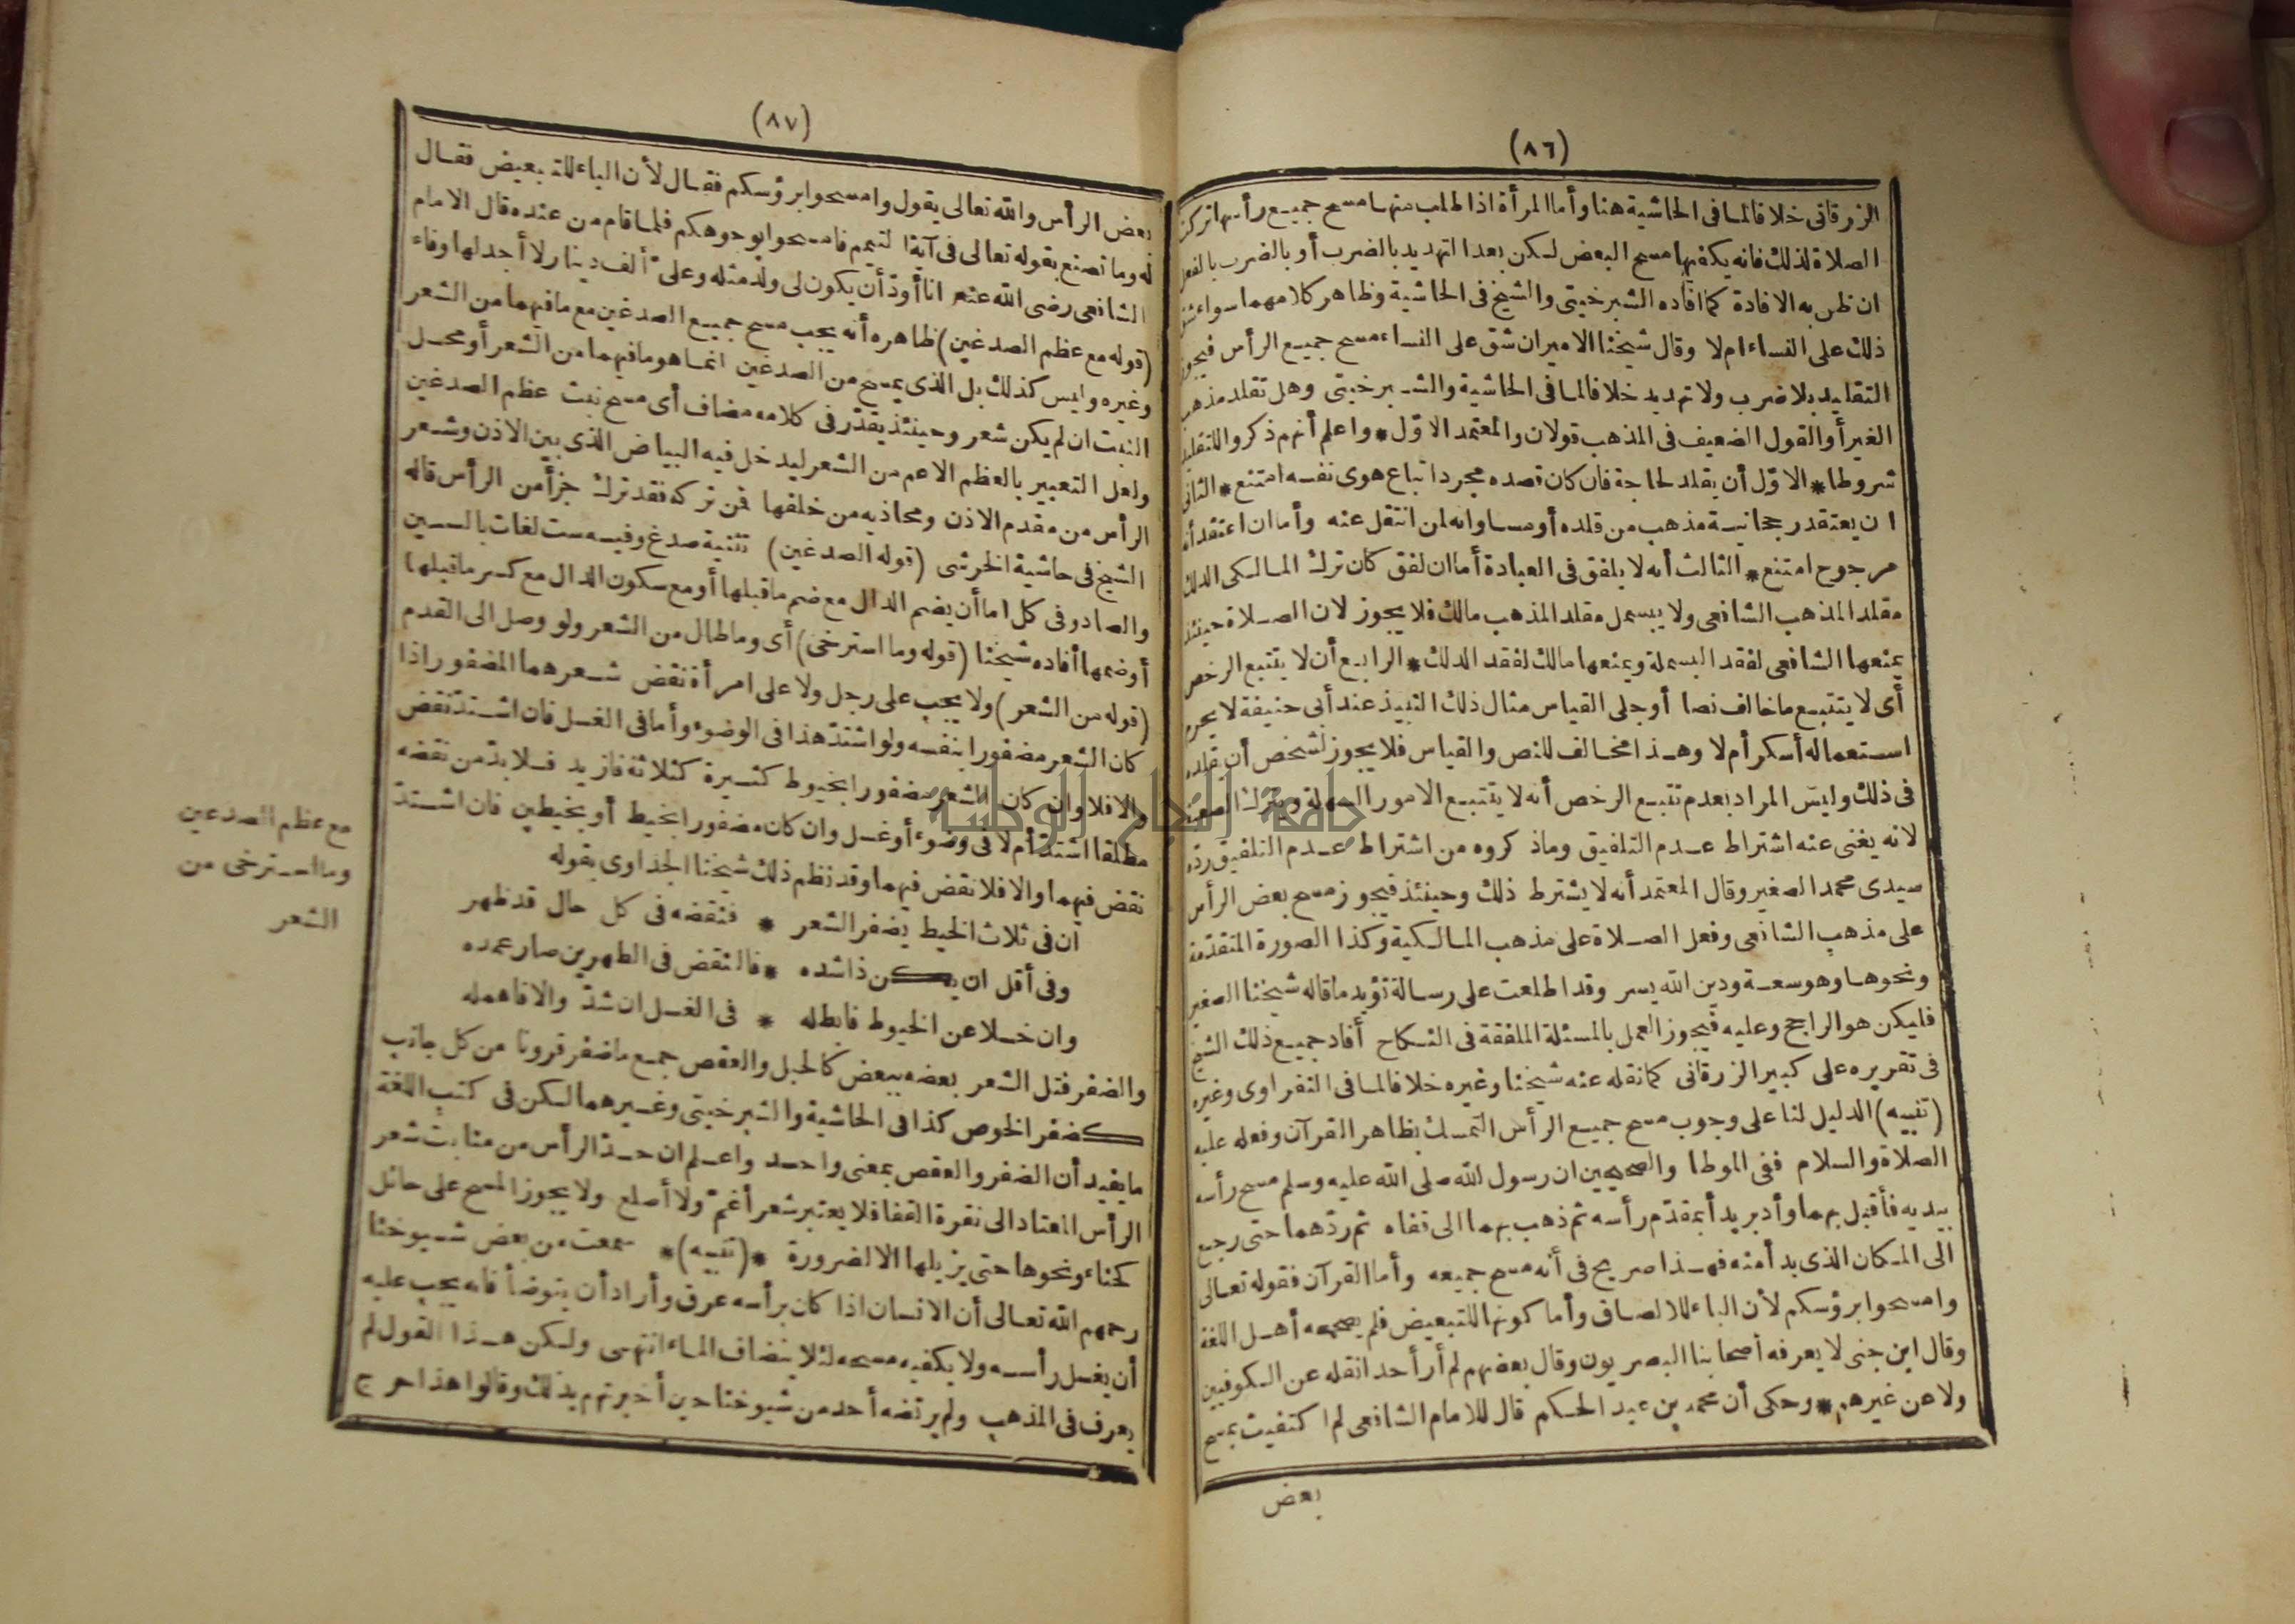 (٨٦)
الزرقانى خلافالمافى الحاشية هنا وأما المرأة اذا طلب منها مسح جميع رأسها تركت
الصلاة لذلك فانه يكفيها مسح البعض لكن بعد التهديد بالضرب أو بالضرب بالفعل
ان ظن به الافادة كما افاده الشبرخيتى والشيخ فى الحاشية وظاهر كلامهما سواء شق
ذلك على النساء ام لا وقال شيخنا الامير ان شق على النساء مسح جميع الرأس فيجوز
التقليد بلا ضرب ولا تهديد خلافا لما فى الحاشية والشبرخيتى وهل تقلد مذهب
الغير أو القول الضعيف فى المذهب قولان والمعتمد الاوّل * واعلم أنهم ذكروا للتقليد
شروطا * الاوّل أن يقلد لحاجة فان كان قصده مجرد اتباع هوى نفسه امتنع * الثانى
ان يعتقد رجحانية مذهب من قلده أو مساواته لمن انتقل عنه وأما ان اعتقد أنه
مرجوح امتنع * الثالث أنه لا يلفق فى العبادة أما ان لفق كان ترك المالكى الدلك
مقلد المذهب الشافعى ولا يبسمل مقلد المذهب مالك فلا يجوز لان الصلاة حينئذ
يمنعها الشافعى لفقد البسملة ويمنعها مالك لفقد الدلك * الرابع أن لا يتتبع الرخص
أى لا يتتبع ما خالف نصا أو جلى القياس مثال ذلك النبيذ عند أبى حنيفة لا يحرم
استعماله أسكر أم لا وهذا مخالف للنص والقياس فلا يجوز لشخص أن يقلده
فى ذلك وليس المراد بعدم تتبع الرخص أنه لا يتتبع الامور السهلة ويترك الصعبة
لانه يغنى عنه اشتراط عدم التلفيق وماذكروه من اشتراط عدم التلفيق رده
سيدى محمد الصغير وقال المعتمد أنه لا يشترط ذلك وحينئذ فيجوز مسح بعض الرأس
على مذهب الشافعى وفعل الصلاة على مذهب المالكية وكذا الصورة المتقدّمة
ونحوها وهو سعة ودين الله يسر وقد اطلعت على رسالة تؤيد ما قاله شيخنا الصغير
فليكن هو الراجح وعليه فيجوز العمل بالمسئلة الملفقة فى النكاح أفاد جميع ذلك الشيخ
فى تقريره على كبير الزرقانى كما نقله عنه شيخنا وغيره خلافا لما فى النفراوى وغيره
(تنبيه) الدليل لنا على وجوب مسح جميع الرأس التمسك بظاهر القرآن وفعله عليه
الصلاة والسلام ففى الموطا والصحيحين ان رسول الله صلى الله عليه وسلم مسح رأسه
بيديه فأقبل بهما وأدبر بدأ بمقدّم رأسه ثم ذهب بهما الى قفاه ثم ردّهما حتى رجع
الى المكان الذى بدأ منه فهذا صريح فى أنه مسح جميعه وأما القرآن فقوله تعالى
وامسحوا برؤسكم لأن الباء للالصاق وأما كونها للتبعيض فلم يصححه أهل اللغة
وقال ابن جنى لا يعرفه أصحابنا البصريون وقال بعضهم لم أر أحدا نقله عن الكوفيين
ولا عن غيرهم * وحكى أن محمد بن عبد الحكم قال للامام الشافعى لم اكتفيت بمسح
بعض
(٨٧)
بعض الرأس والله تعالى يقول وامسحوا برؤسكم فقال لأن الباء للتبعيض فقال
له وما تصنع بقوله تعالى فى آية التيمم فامسحوا بوجوهكم فلما قام من عنده قال الامام
الشافعى رضى الله عنه انا أودّ أن يكون لى ولد مثله وعلىّ ألف دينار لا أجد لها وفاء
(قوله مع عظم الصدغين) ظاهره أنه يجب مسح جميع الصدغين مع ما فيهما من الشعر
وغيره وليس كذلك بل الذى يمسح من الصدغين انما هو ما فيهما من الشعر أو محل
النبت ان لم يكن شعر وحينئذ يقدّر فى كلامه مضاف أى مسح نبت عظم الصدغين
ولعل التعبير بالعظم الاعم من الشعر ليدخل فيه البياض الذى بين الاذن وشعر
الرأس من مقدم الاذن ومحاذيه من خلفها فمن تركه فقد ترك جزأ من الرأس قاله
الشيخ فى حاشية الخرشى (قوله الصدغين) تثنية صدغ وفيه ست لغات بالسين
والصاد وفى كل اما أن يضم الدال مع ضم ما قبلها أو مع سكون الدال مع كسر ما قبلها
أو ضمها أفاده شيخنا (قوله وما استرخى) أى وما طال من الشعر ولو وصل الى القدم
(قوله من الشعر) ولا يجب على رجل ولا على امرأة نقض شعرهما المضفور اذا
كان الشعر مضفورا بنفسه ولو اشتدّ هذا فى الوضوء وأما فى الغسل فان اشتدّ نقض
والا فلا وان كان الشعر مضفورا بخيوط كثيرة كثلاثة فازيد فلا بدّ من نقضه
مطلقا اشتدّ أم لا فى وضوء أو غسل وان كان مضفورا بخيط أو بخيطين فان اشتدّ
نقض فيهما والا فلا نقض فيهما وقد نظم ذلك شيخنا الجداوى بقوله
ان فى ثلاث الخيط يضفر الشعر * فنقضه فى كل حال قد ظهر
وفى أقل ان يكن ذا شده * فالنقض فى الطهرين صار عمده
وان خلا عن الخيوط فابطله * فى الغسل ان شدّ والا فاهمله
والضفر فتل الشعر بعضه ببعض كالحبل والعقص جمع ما ضفر قرونا من كل جانب
كضفر الخوص كذا فى الحاشية والشبرخيتى وغيرهما لكن فى كتب اللغة
ما يفيد أن الضفر والعقص بمعنى واحد واعلم ان حدّ الرأس من منابت شعر
الرأس المعتاد الى نقرة القفا فلا يعتبر شعر أغمّ ولا أصلع ولا يجوز المسح على حائل
كحناء ونحوها حتى يزيلها الا لضرورة * (تنبيه) * سمعت من بعض شيوخنا
رحمهم الله تعالى أن الانسان اذا كان برأسه عرق وأراد أن يتوضأ فانه يجب عليه
أن يغسل رأسه ولا يكفيه مسحه لئلا ينضاف الماء انتهى ولكن هذا القول لم
يعرف فى المذهب ولم يرتضه أحد من شيوخنا حين أخبرتهم بذلك وقالوا هذا حرج
مع عظم الصدعين
وما استرخى من
الشعر
جامعة النجاح الوطنية